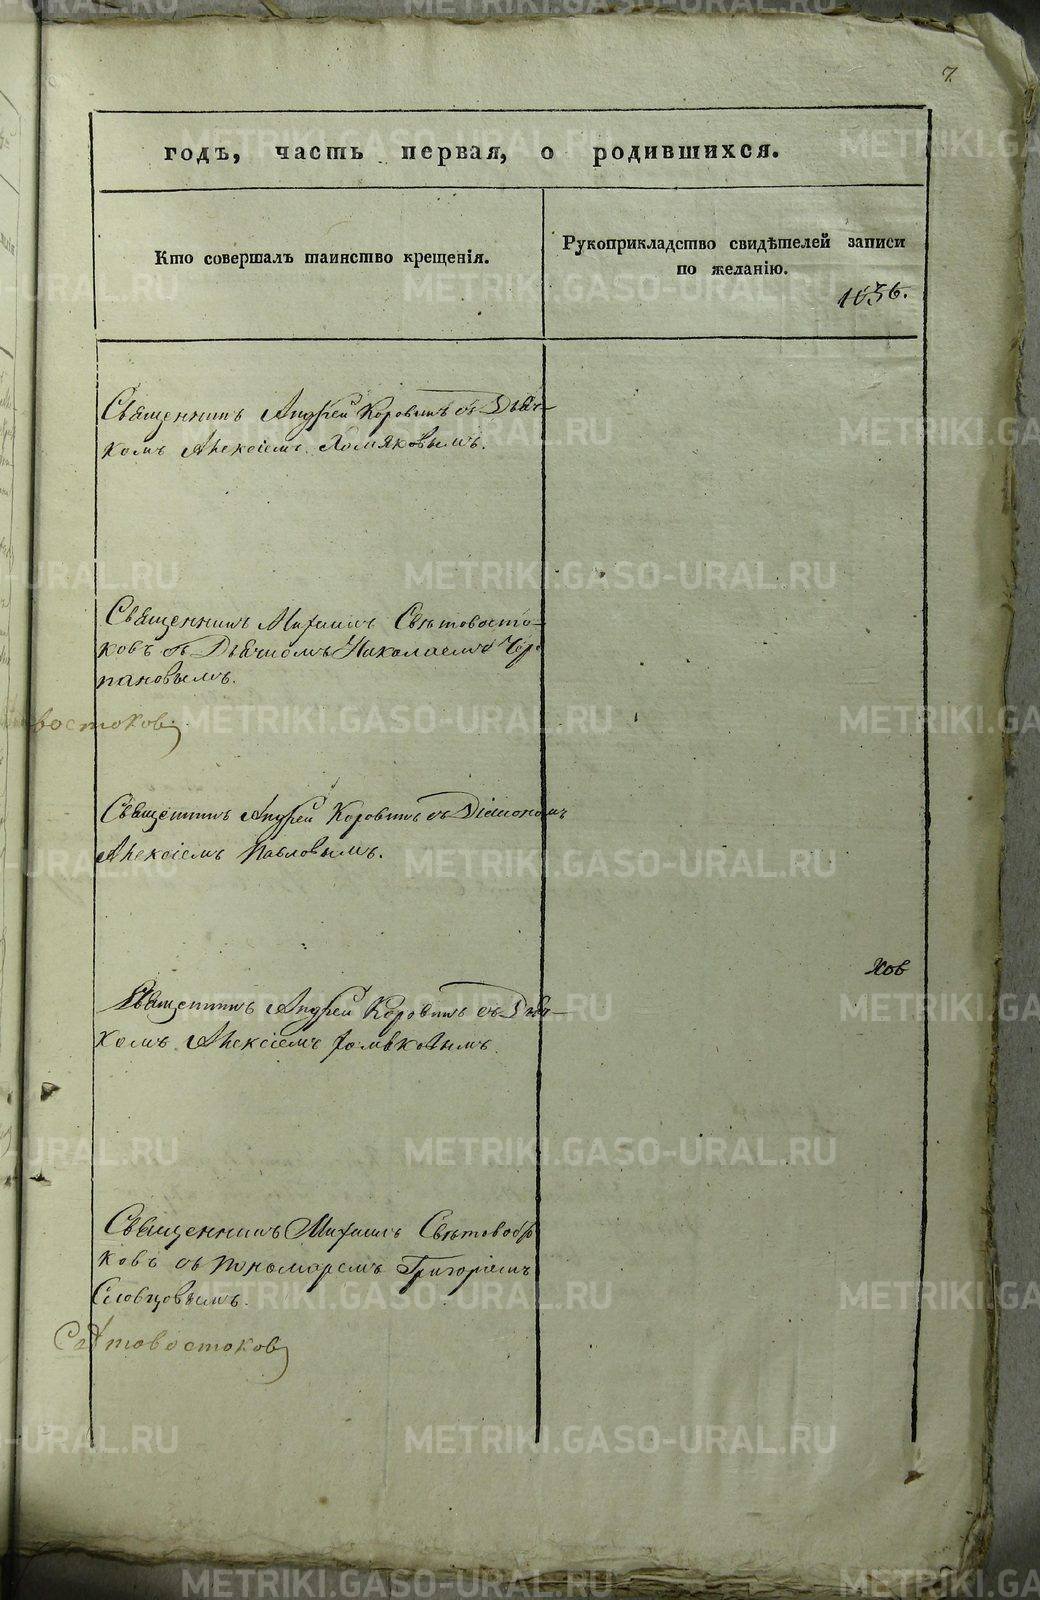 7.
годъ, часть первая, о родившихся.
Кто совершалъ таинство крещенія.
Рукоприкладство свидѣтелей записи
по желанію.
1856.
Священникъ Андрей Коровинъ съ Дьяч-
комъ Алексіемъ Хомяковымъ.
Священникъ Михаилъ Свѣтовосто-
ковъ съ Дьячкомъ Николаемъ Чер
пановымъ.
востоковъ
Священникъ Андрей Коровинъ съ Діакономъ
Алексіемъ Павловымъ.
Священникъ Андрей Коровинъ съ Дьяч-
комъ Алексіемъ Хомяковымъ.
ков
Священникъ Михаилъ Свѣтовосто
ковъ съ Пономаремъ Григоріемъ
Словцовымъ.
Свѣтовостоковъ
METRIKI.GASO-URAL.RU